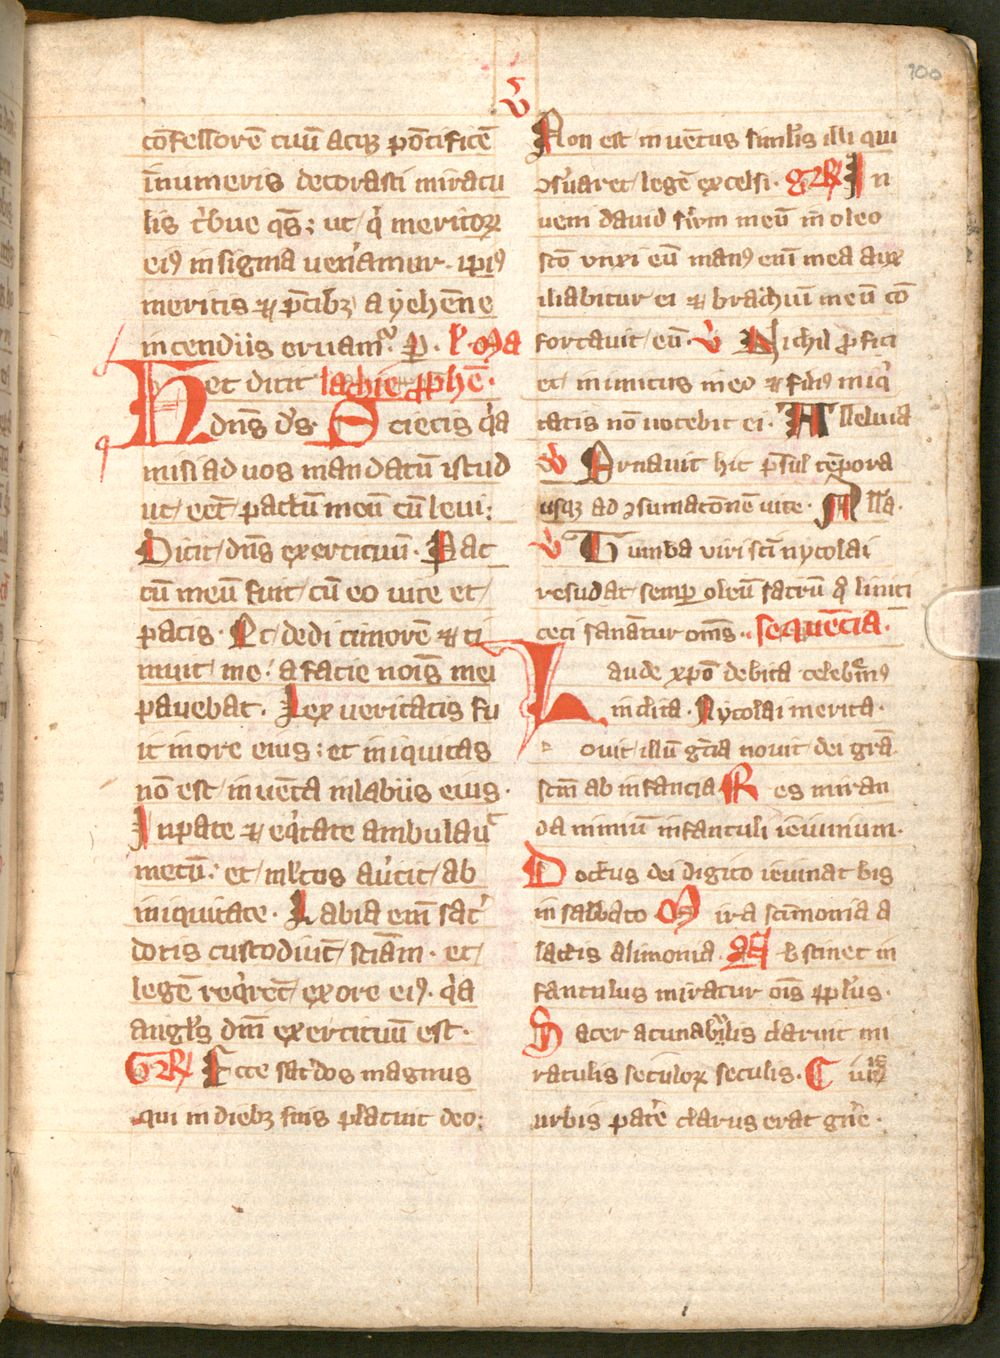 100
cōfessorē tuū atq; pōtificē
īnumeris decorasti miracu
lis t'bue qs̄; ut q̓ meritoꝝ
eiꝰ insignia uen'amur. ip̄iꝰ
meritis ⁊ p̄cibꝫ a gehēne
incendiis eruam̄. p. l'. mala
Hec dicit lachie ꝓphē.
dn̄s d's. Ecce ego
misi ad uos mandatū istud
ut eēt pactū meū cū leui:
Dicit dn̄s exercituū. Pac
tū meū fuit cū eo uite et
pacis. Et dedi timorē ⁊ ti
muit me: a facie nois̄ mei
pauebat. Lex ueritatis fu
it in ore eius: et iniquitas
nō est inuēta in labiis eius.
In pace ⁊ eq̓tate ambulauit
mecū: et ml'tos au'tit ab
iniquitate. Labia em̄ sac'
dotis custodiūt sciam̄. et
legē req̓rēt ex ore eiꝰ. q̓a
angl's dn̄i exercituū est.
GR̄ Ecce sac'dos magnus
qui in diebꝫ suis placuit deo:
v̄ Non est inuētus similis illi qui
ↄs'uaret legē excelsi. GR̄ In
ueni dauid s'uum meū in oleo
sc̄o unxi eū manꝰ em̄ mea aux
iliabitur ei ⁊ brachiū meū cō
fortauit eū. v̄ Nichil ꝓfici
et inimicus in eo ⁊ filiꝰ iniq̓
tatis nō nocebit ei. Alleluia
v̄ Ornauit hic p̄sul tēpora
usqꝫ ad ↄsumatōnē uite. All'a.
v̄ Tumba uiri sc̄i nycolai
resudat semp̄ oleū sacrū q̓ liniti
ceci sanātur om̄s. sequēcia.
Laude xp̄o debita celebrem̄ꝰ
inclita. Nycolai merita.
ouit illū gēta nouit dei grā
sc̄m ab infancia Res miran
da nimiū infantuli ieiunium.
Doctus dei digito ieiunat bis
in sabbato Mira sc̄imonia a
lactis alimonia. Abstinet in
fantulus miratur ois̄ ꝓpl'us.
Sacer a cunabulis claruit mi
raculis seculoꝝ seculis. Ciuis
urbis patere clarus erat gn̄e.